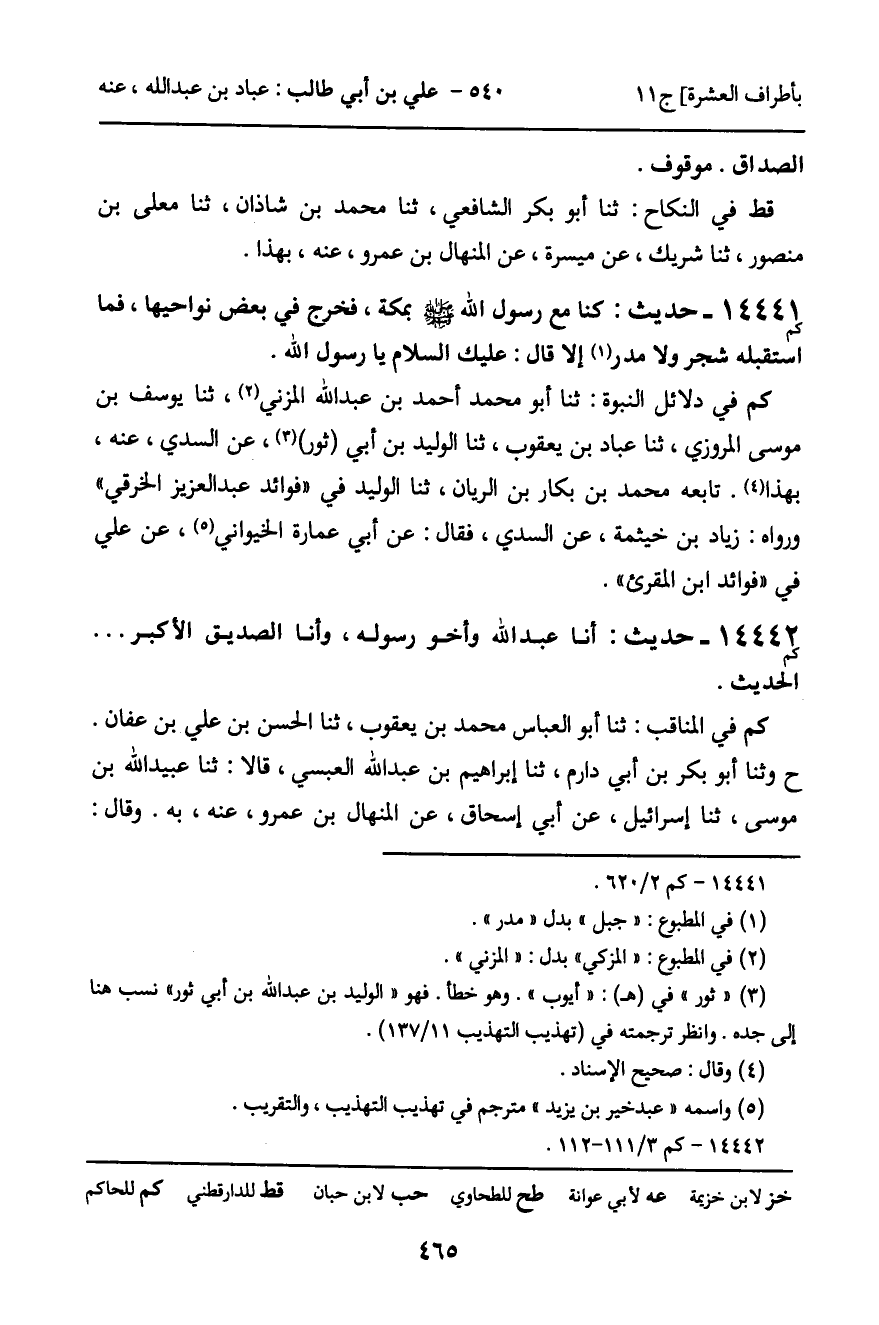 بأطراف العشرة] ج١١ ٥٤٠ - علي بن أبي طالب : عباد بن عبدالله ، عنه
الصداق . موقوف .
قط في النكاح : ثنا أبو بكر الشافعي ، ثنا محمد بن شاذان ، ثنا معلى بن
منصور ، ثنا شريك ، عن ميسرة ، عن المنهال بن عمرو ، عنه ، بهذا .
١٤٤٤١ ـ حديث : كنا مع رسول الله ﷺ بمكة ، فخرج في بعض نواحيها ، فما
كم
استقبله شجر ولا مدر(١) إلا قال : عليك السلام يا رسول الله .
كم في دلائل النبوة : ثنا أبو محمد أحمد بن عبدالله المزني(٢) ، ثنا يوسف بن
موسى المروزي ، ثنا عباد بن يعقوب ، ثنا الوليد بن أبي (ثور)(٣) ، عن السدي ، عنه ،
بهذا(٤) . تابعه محمد بن بكار بن الريان ، ثنا الوليد في «فوائد عبدالعزيز الخرقي»
ورواه : زياد بن خيثمة ، عن السدي ، فقال : عن أبي عمارة الخيواني(٥) ، عن علي
في «فوائد ابن المقرئ» .
١٤٤٤٢ ـ حديث : أنـا عبـدالله وأخـو رسولـه ، وأنـا الصديـق الأكبـر ...
كم
الحديث .
كم في المناقب : ثنا أبو العباس محمد بن يعقوب ، ثنا الحسن بن علي بن عفان .
ح وثنا أبو بكر بن أبي دارم ، ثنا إبراهيم بن عبدالله العبسي ، قالا : ثنا عبيدالله بن
موسى ، ثنا إسرائيل ، عن أبي إسحاق ، عن المنهال بن عمرو ، عنه ، به . وقال :
١٤٤٤١ - كم ٦٢٠/٢ .
(١) في المطبوع : « جبل » بدل « مدر » .
(٢) في المطبوع : « المزكي» بدل : « المزني » .
(٣) « ثور » في (هـ) : « أيوب » . وهو خطأ . فهو « الوليد بن عبدالله بن أبي ثور» نسب هنا
إلى جده . وانظر ترجمته في (تهذيب التهذيب ١٣٧/١١) .
(٤) وقال : صحيح الإسناد .
(٥) واسمه « عبدخير بن يزيد » مترجم في تهذيب التهذيب ، والتقريب .
١٤٤٤٢ - كم ١١١/٣-١١٢ .
خز لابن خزيمة عه لأبي عوانة طح للطحاوي حب لابن حبان قط للدارقطني كم للحاكم
٤٦٥